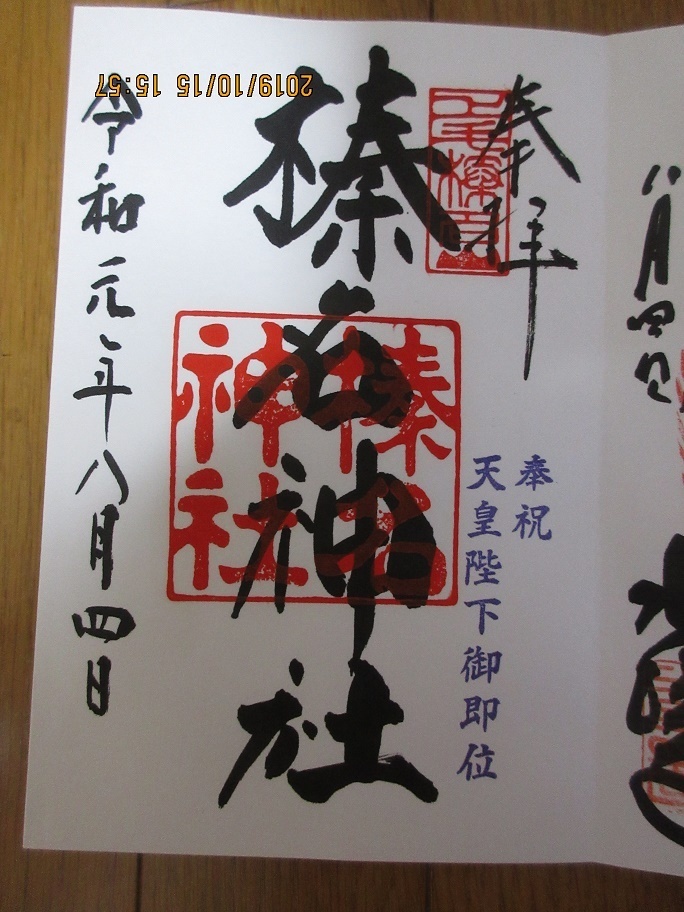 八月四日
奉拝
上毛榛名
奉祝
天皇陛下御即位
榛名神社
榛名
神社
令和元年八月四日
2019/10/15 15:57